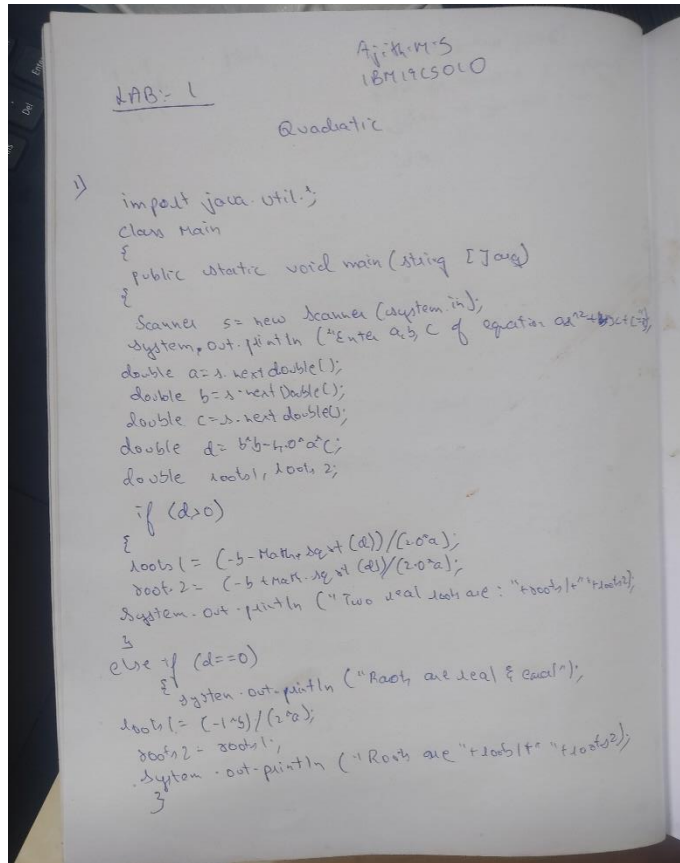 Ajith.M.S
1BM19CS010
LAB:- 1
Quadratic
1)
import java.util.*;
class Main
{
public static void main(string []arg)
{
Scanner s= new Scanner (system.in);
system.out.println ("Enter a,b,c of equation ax^2+bx+c=0");
double a=s.nextdouble();
double b=s.nextDouble();
double c=s.nextdouble();
double d= b*b-4.0*a*c;
double roots1, roots2;
if (d>0)
{
roots1= (-b-Math.sqrt(d))/(2.0*a);
roots2= (-b+Math.sqrt(d))/(2.0*a);
system.out.println ("Two real roots are : "+roots1+" "+roots2);
}
else if (d==0)
{ system.out.println ("Roots are real & equal");
roots1= (-1*b)/(2*a);
roots2= roots1;
system.out.println ("Roots are "+roots1+" "+roots2);
}
Ente
Del